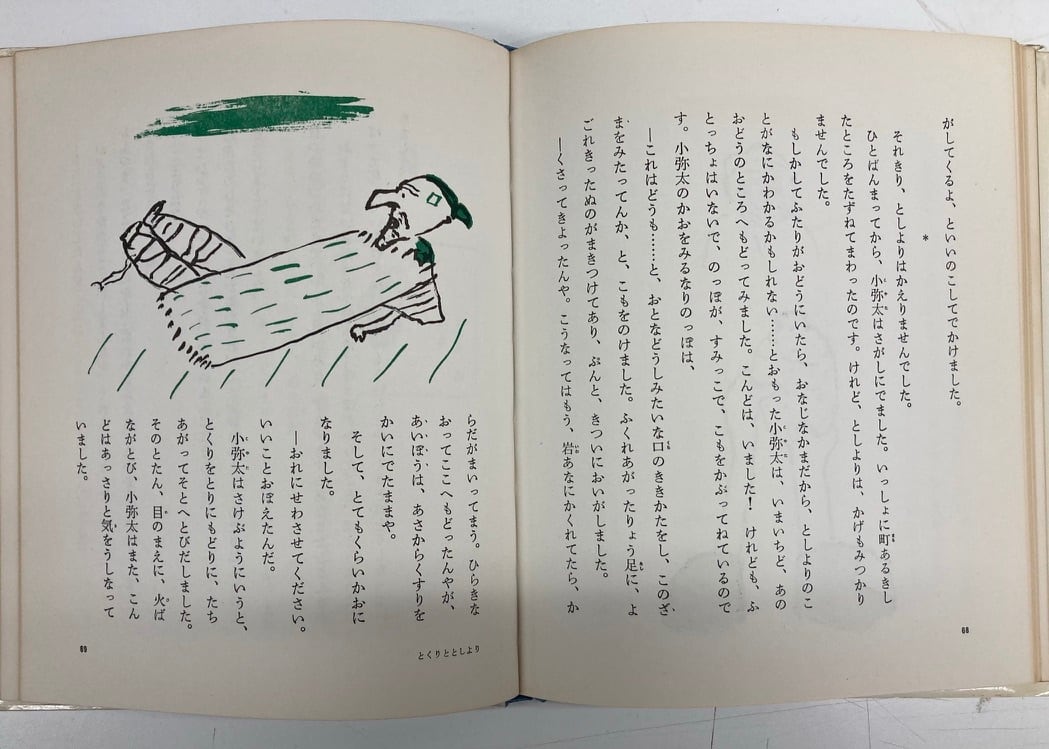 がしてくるよ、といいのこしてでかけました。
*
それきり、としよりはかえりませんでした。
ひとばんまってから、小弥太はさがしにでました。いっしょに町あるきし
たところをたずねてまわったのです。けれど、としよりは、かげもみつかり
ませんでした。
もしかしてふたりがおどうにいたら、おなじなかまだから、としよりのこ
とがなにかわかるかもしれない……とおもった小弥太は、いまいちど、あの
おどうのところへもどってみました。こんどは、いました！　けれども、ふ
とっちょはいないで、のっぽが、すみっこで、こもをかぶってねているので
す。小弥太のかおをみるなりのっぽは、
―これはどうも……と、おとなどうしみたいな口のききかたをし、このざ
まをみたってんか、と、こもをのけました。ふくれあがったりょう足に、よ
ごれきったぬのがまきつけてあり、ぷんと、きついにおいがしました。
―くさってきよったんや。こうなってはもう、岩あなにかくれてたら、か
68
らだがまいってまう。ひらきな
おってここへもどったんやが、
あいぼうは、あさからくすりを
かいにでたままや。
そして、とてもくらいかおに
なりました。
―おれにせわさせてください。
いいことおぼえたんだ。
小弥太はさけぶようにいうと、
とくりをとりにもどりに、たち
あがってそとへとびだしました。
そのとたん、目のまえに、火ば
ながとび、小弥太はまた、こん
どはあっさりと気をうしなって
いました。
とくりととしより
69